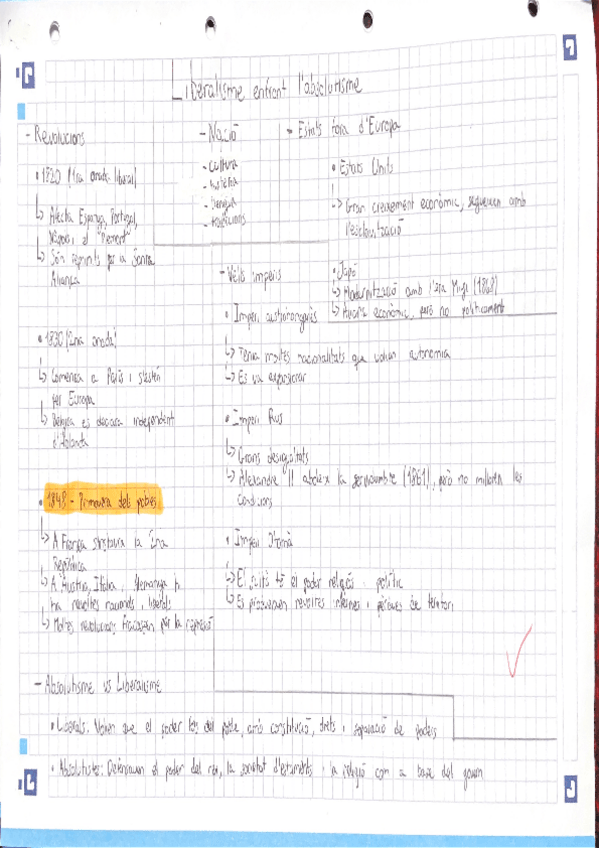 Liberalisme enfront l'absolutisme
- Revolucions
• 1820 (1ra onada liberal)
↳ Afecta Espanya, Portugal,
Nàpols i el "Piemont"
↳ Són reprimits per la Santa
Aliança
• 1830 (2na onada)
↳ Comença a París i s'estén
per Europa
↳ Bèlgica es declara independent
d'Holanda
• 1848 - Primavera dels pobles
↳ A França s'instaura la 2na
República
↳ A Àustria, Itàlia, Alemanya hi
ha revoltes nacionals i liberals
↳ Moltes revolucions fracassen per la repressió
- Nació
- Cultura
- Història
- Llengua
- Tradicions
- Estats fora d'Europa
• Estats Units
↳ Gran creixement econòmic, segueixen amb
l'esclavització
• Japó
↳ Modernització amb l'era Meiji (1868)
↳ econòmic, però no políticament
- Vells imperis
• Imperi austrohongarès
↳ Tenia moltes nacionalitats que volien autonomia
↳ Es va
• Imperi Rus
↳ Grans desigualtats
↳ Alexandre II aboleix la servitud (1861), però no milloren les
condicions
• Imperi Otomà
↳ El sultà té el poder religiós i polític
↳ Es produeixen revoltes internes i pèrdues de territori
- Absolutisme vs Liberalisme
• Liberals: Volien que el poder fos del poble, amb constitució, drets i separació de poders
• Absolutistes: Defensaven el poder del rei, la societat d'estaments i la religió com a base del govern